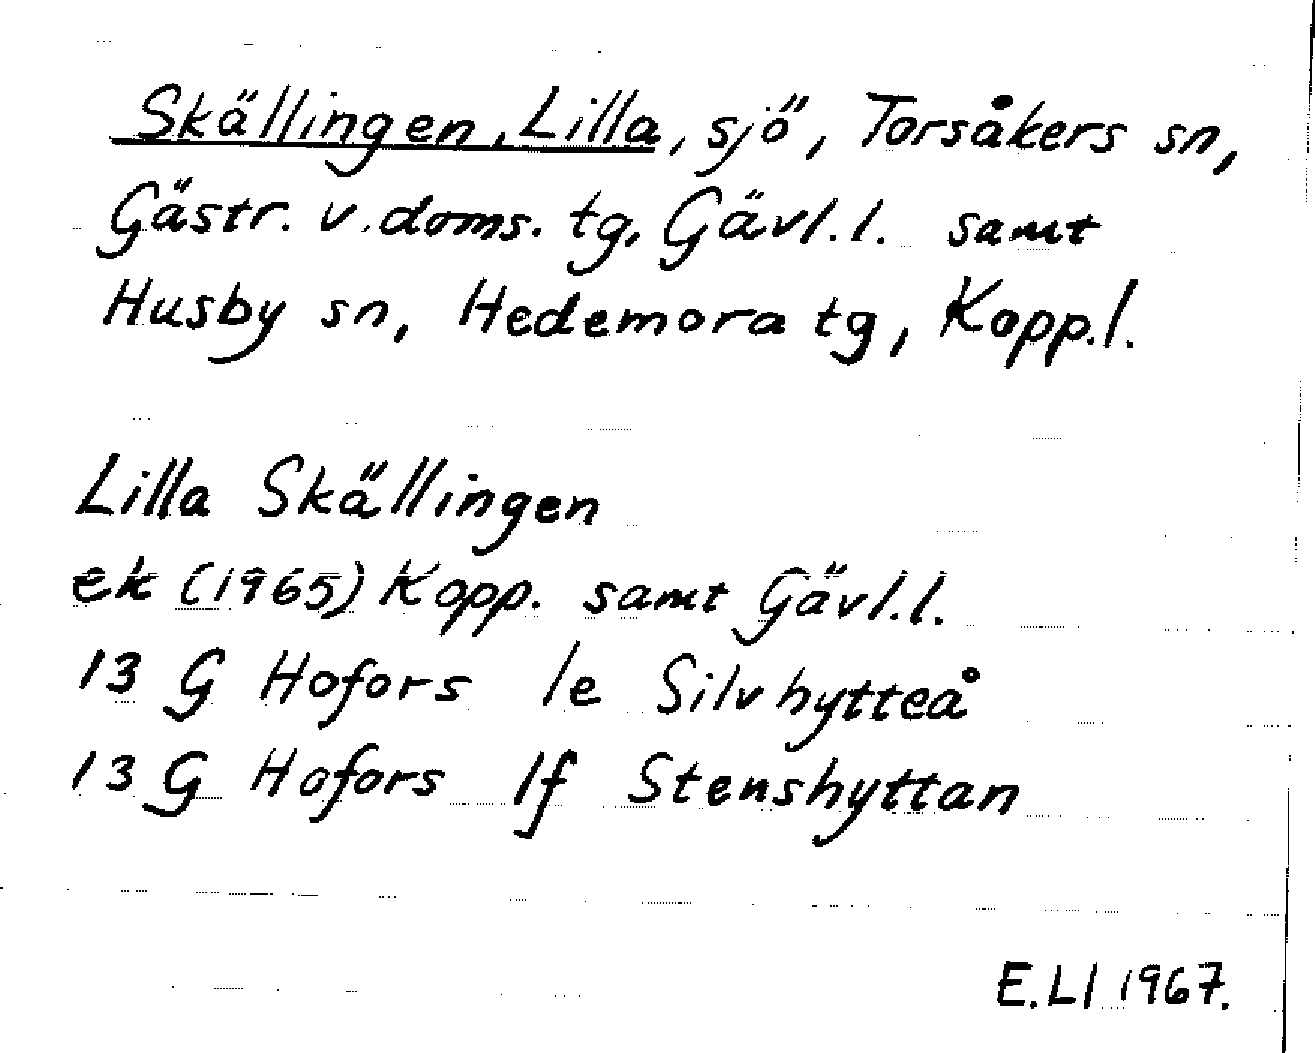 Skällingen, Lilla, sjö, Torsåkers sn,
Gästr. v. doms. tg, Gävl.l. samt
Husby sn, Hedemora tg, Kopp.l.
Lilla Skällingen
ek (1965) Kopp. samt Gävl.l.
13 G Hofors 1e Silvhytteå
13 G Hofors 1f Stenshyttan
E.Ll 1967.